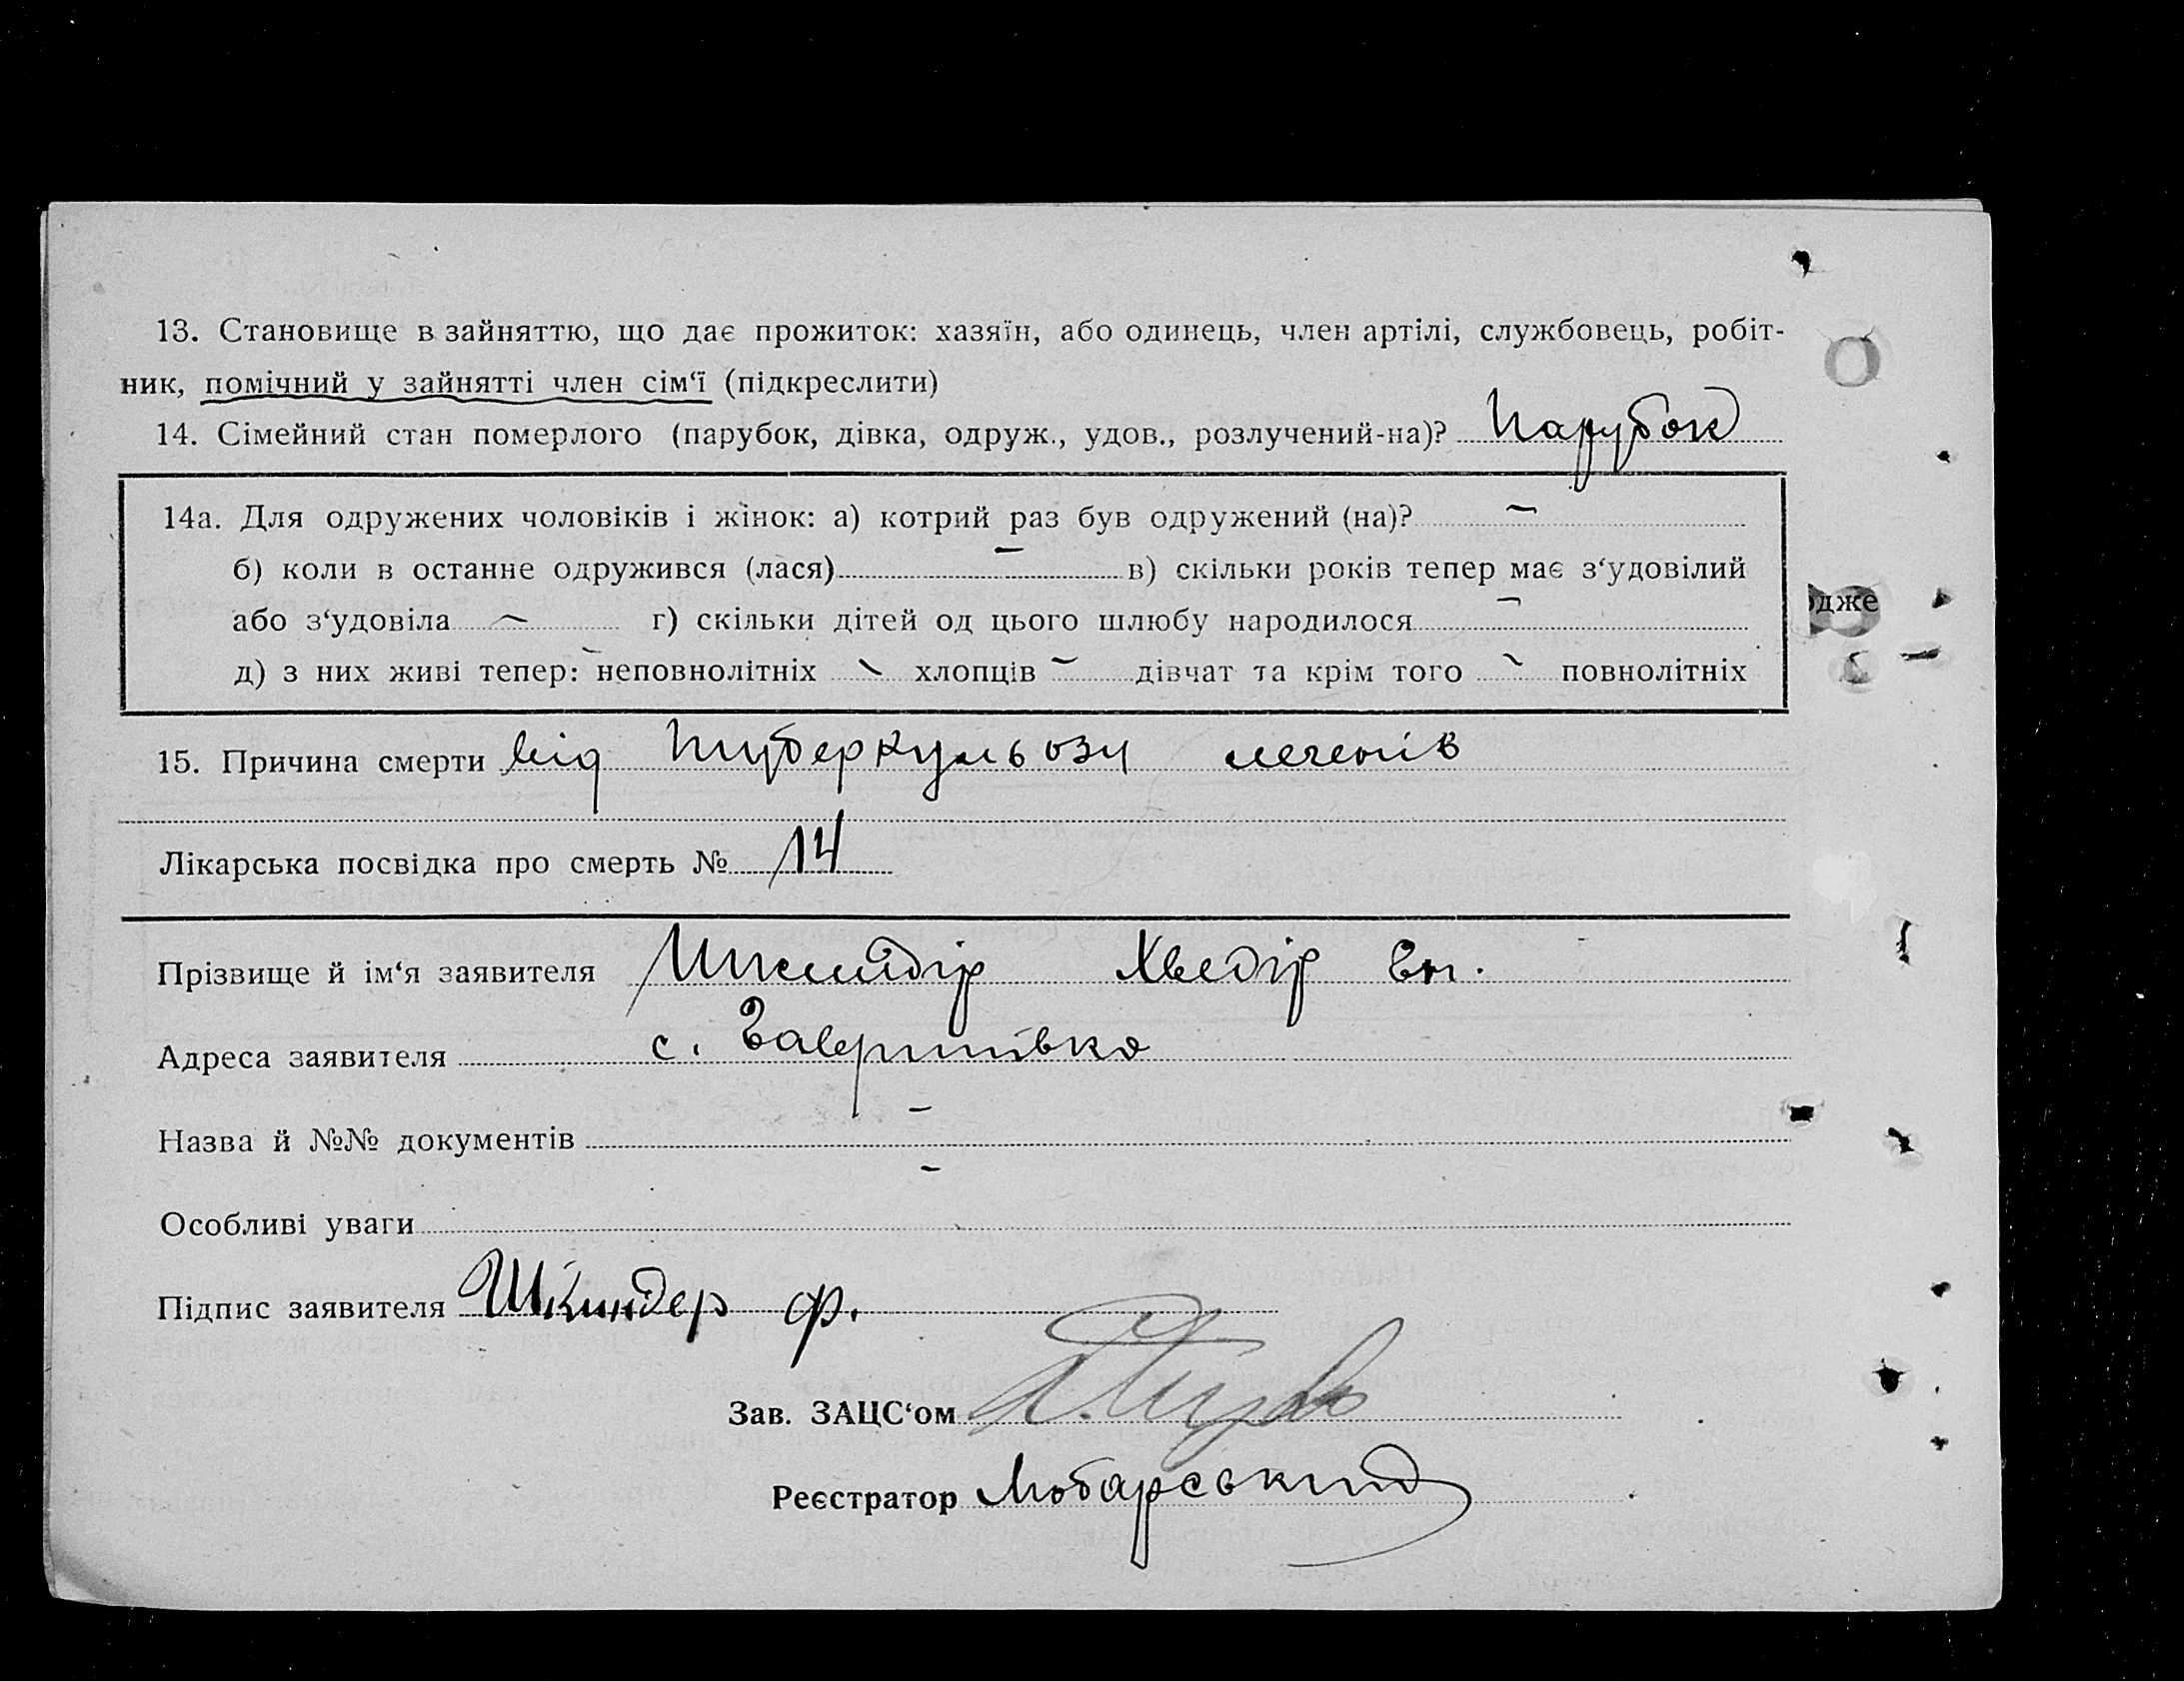 13. Становище в зайняттю, що дає прожиток: хазяїн, або одинець, член артілі, службовець, робіт-
ник, помічний у зайнятті член сім'ї (підкреслити)
14. Сімейний стан померлого (парубок, дівка, одруж., удов., розлучений-на)? Парубок
14а. Для одружених чоловіків і жінок: а) котрий раз був одружений (на)? –
б) коли в останнє одружився (лася) – в) скільки років тепер має з'удовілий
або з'удовіла – г) скільки дітей од цього шлюбу народилося –
д) з них живі тепер: неповнолітніх – хлопців – дівчат та крім того – повнолітніх
одже
15. Причина смерти від туберкульозу легенів
Лікарська посвідка про смерть № 14
Прізвище й ім'я заявителя Шкиндір Хведір
Адреса заявителя с. Гавришівка
Назва й №№ документів –
Особливі уваги –
Підпис заявителя Шкиндер Ф.
Зав. ЗАЦС'ом
Реєстратор